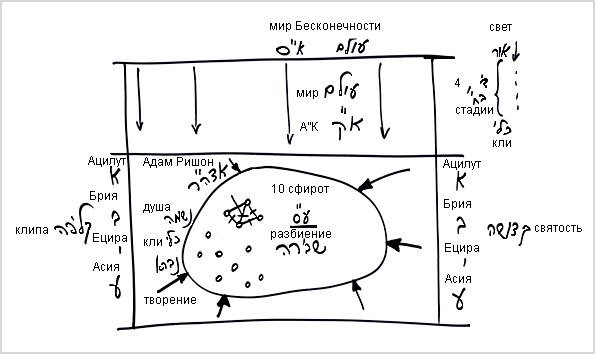 мир Бесконечности
עולם א"ס
свет
אור
мир עולם
А"К א"ק
4 ד' בח'
стадии
כלי
кли
Ацилут
א
Брия
ב
клипа קליפה
Ецира
י
Асия
ע
Адам Ришон
אדה"ר
душа נשמה
кли כלי
творение
10 сфирот
ע"ס
разбиение
שבירה
Ацилут
א
Брия
ב
קדושה святость
Ецира
י
Асия
ע